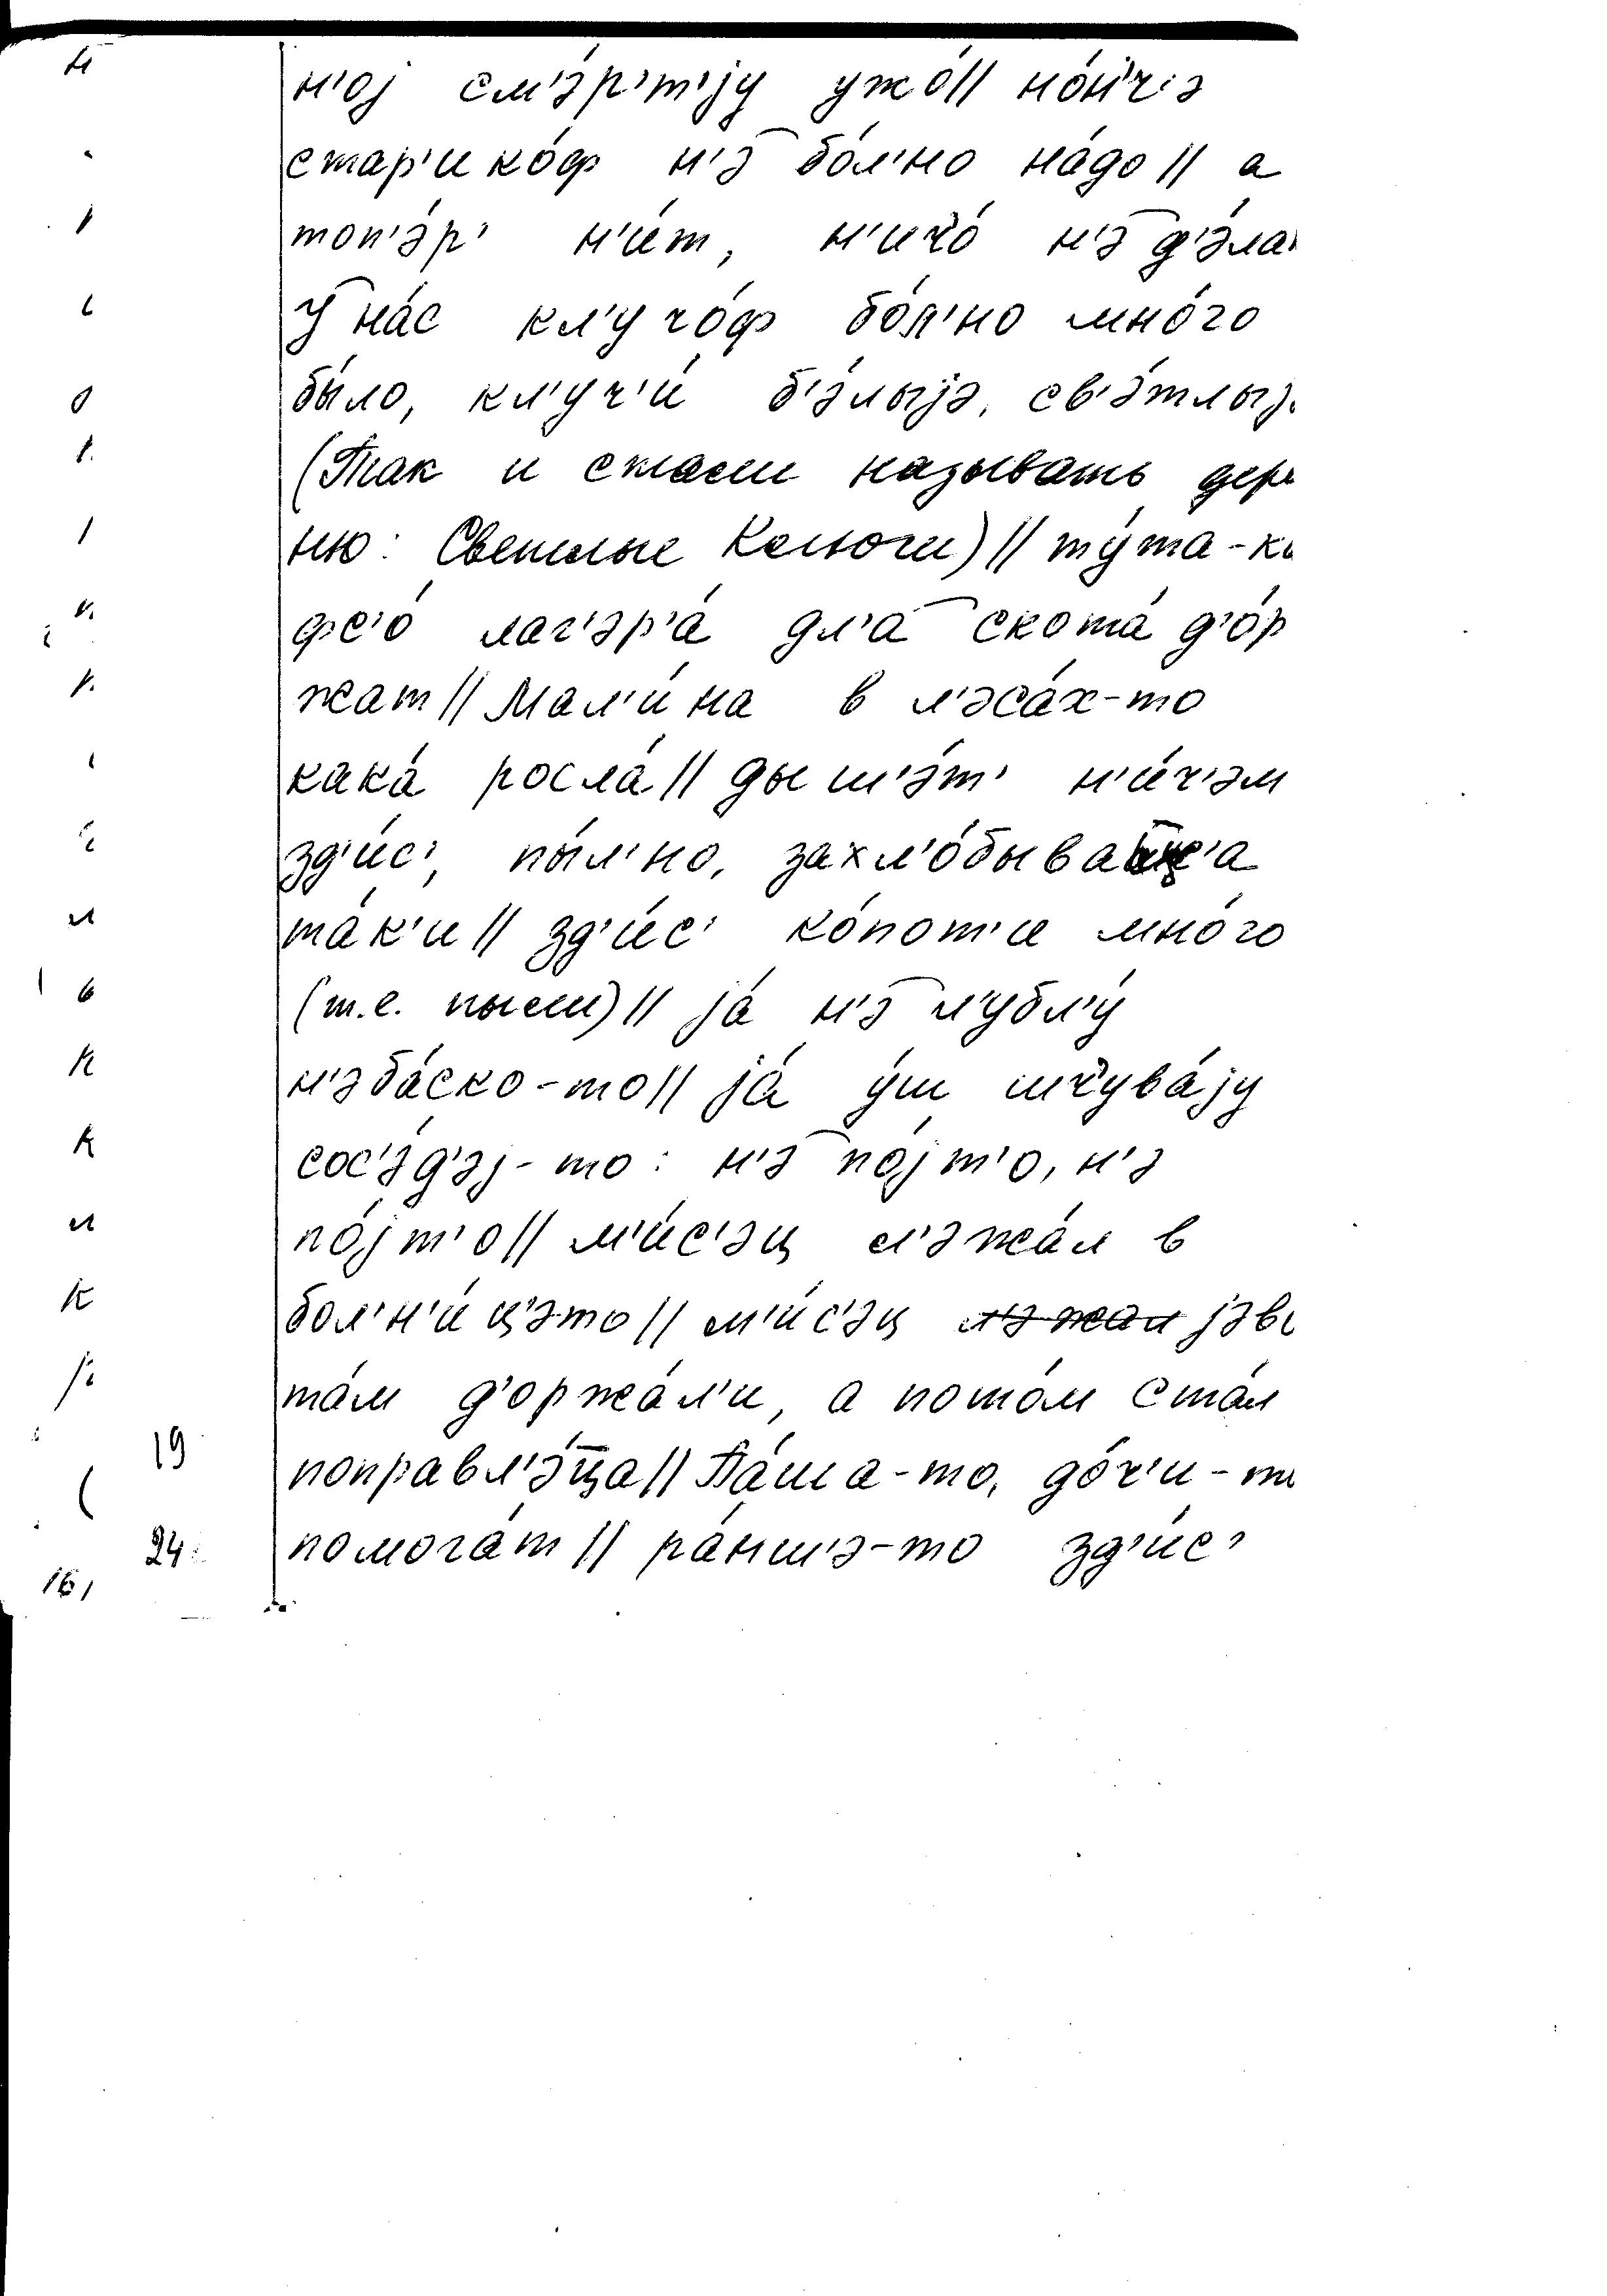 н'ој см'э́р'т'jу ужо́ // но́н'ч'э
стар'ико́ф н'э бо́л'но на́до // а
топ'э́р' н'и́т, н'ичо́ н'э д'э́ла
У нас кл'учо́ф бо́л'но мно́го
бы́ло, кл'уч'и́ б'э́лыjэ, св'э́тлыj
(Так и стали называть дере
ню: Светлые Ключи) // ту́та-к
фс'о́ лаг'эр'а́ дл'а скота́ д'о́р
жат // Мал'и́на в л'эса́х-то
кака́ росла́ // дыш'э́т' н'и́ч'эм
зд'и́с', пы́л'но, захл'о́быва
та́к'и // зд'и́с' ко́пот'и мно́го
(т.е. пыли) // jа́ н'э л'убл'у́
н'эба́ско-то // jа́ у́ш шчува́jу
сос'э́д'эj-то: н'э по́jт'о, н'э
по́jт'о // м'и́с'эц л'эжа́л в
бол'н'и́ц'э-то // м'и́с'эц л'эжал jэв
та́м д'оржа́л'и, а пото́м ста́л
поправл'э́ца // Па́ша-то, до́ч'и-т
помога́т // ра́нш'э-то зд'и́с'
19
24